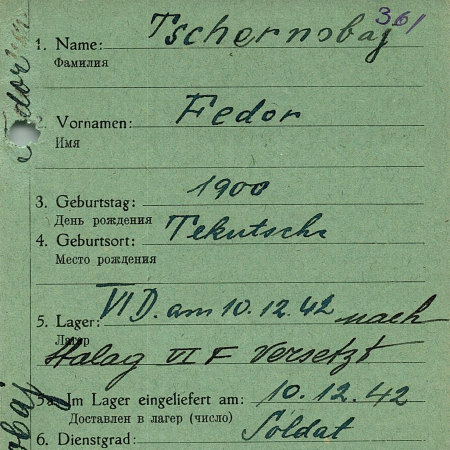 361
1. Name: Tschernobaj
Фамилия
2. Vornamen: Fedor
Имя
3. Geburtstag: 1900
День рождения
4. Geburtsort: Tekutsch
Место рождения
5. Lager: VI D. am 10.12.42 nach
Лагер
Stalag VI F Versetzt
5a. Im Lager eingeliefert am: 10.12.42
Доставлен в лагер (число)
6. Dienstgrad: Soldat
Fedor
obaj